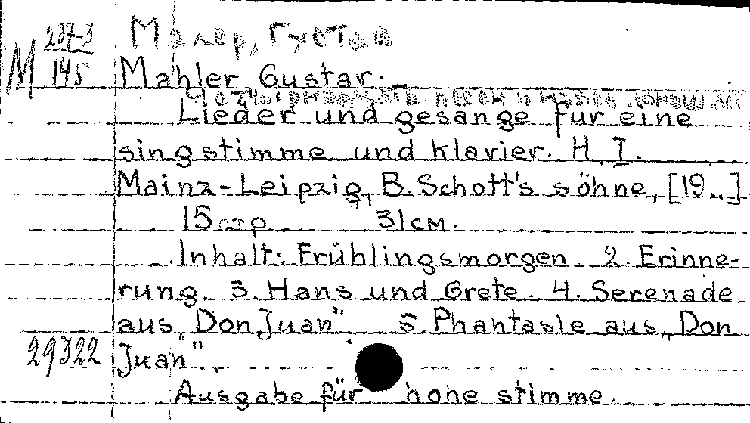 M 237-3
145
Малер, Густав
Mahler Gustav.
Lieder und gesange für eine
singstimme und klavier. H. I.
Mainz-Leipzig, B. Schott's söhne, [19..]
15 стр. 31 см.
Inhalt: Frühlingsmorgen. 2. Erinne-
rung. 3. Hans und Grete. 4. Serenade
aus „Don Juan" 5. Phantasie aus „Don
29322 Juan"
Ausgabe für hohe stimme.